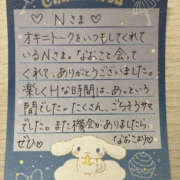 ♡ Nさま ♡
オキニトークをいつもしてくれて
いるNさま。なおこと会って
くれて、ありがとうございました。
楽しくHな時間は、あっという
間でした。たくさん、ごちそうサマ
でした。また機会がありましたら、
ぜひ♡ なおこより♡